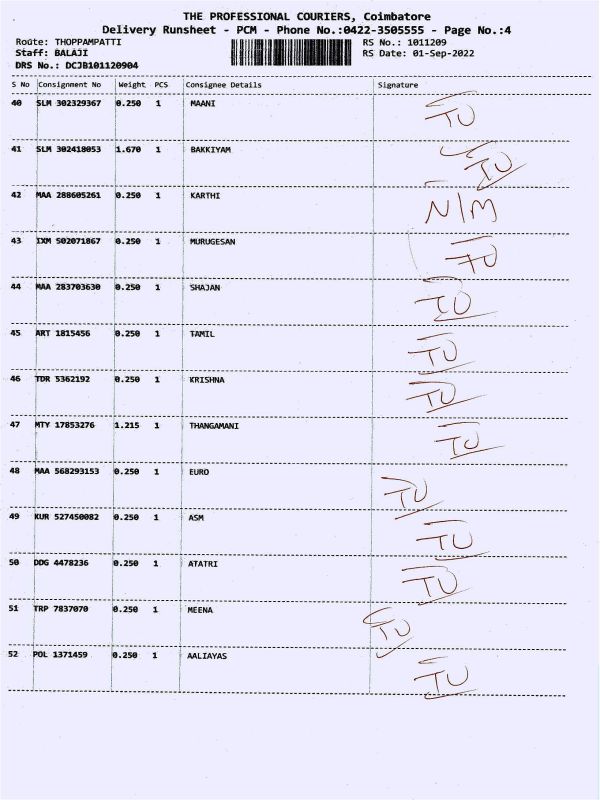 THE PROFESSIONAL COURIERS, Coimbatore
Delivery Runsheet - PCM - Phone No.:0422-3505555 - Page No.:4
Route: THOPPAMPATTI RS No.: 1011209
Staff: BALAJI RS Date: 01-Sep-2022
DRS No.: DCJB101120904
S No Consignment No Weight PCS Consignee Details Signature
40 SLM 302329367 0.250 1 MAANI
41 SLM 302418053 1.670 1 BAKKIYAM
42 MAA 288605261 0.250 1 KARTHI N/M
43 IXM 502071867 0.250 1 MURUGESAN
44 MAA 283703630 0.250 1 SHAJAN
45 ART 1815456 0.250 1 TAMIL
46 TDR 5362192 0.250 1 KRISHNA
47 MTY 17853276 1.215 1 THANGAMANI
48 MAA 568293153 0.250 1 EURO
49 KUR 527450082 0.250 1 ASM
50 DDG 4478236 0.250 1 ATATRI
51 TRP 7837070 0.250 1 MEENA
52 POL 1371459 0.250 1 AALIAYAS